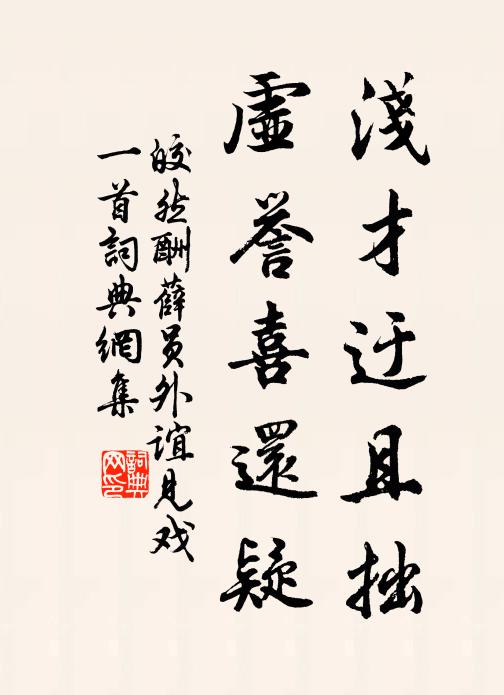 淺才迂且拙
虛譽喜還疑
皎然酬薛員外誼見戏
一首詞典網集
詞典
网印